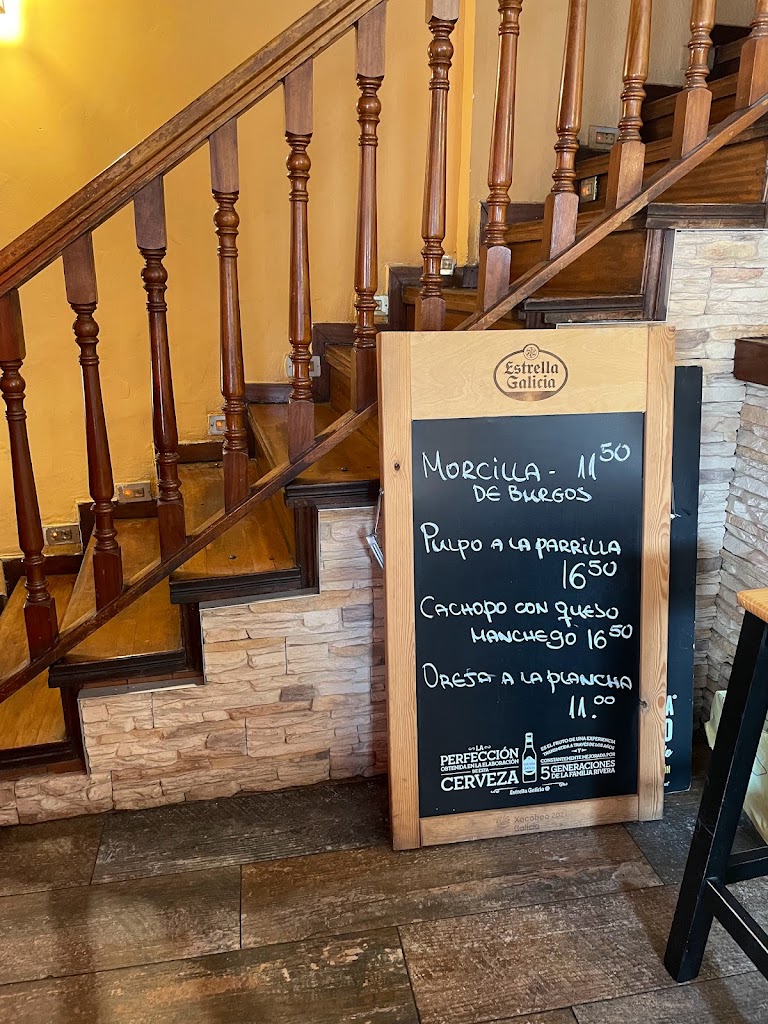 Estrella
Galicia
MORCILLA - 11.50
DE BURGOS
PULPO A LA PARRILLA
16.50
CACHOPO CON QUESO
MANCHEGO 16.50
OREJA A LA PLANCHA
11.00
LA
PERFECCIÓN
OBTENIDA EN LA ELABORACIÓN
DE ESTA
CERVEZA
ES EL FRUTO DE UNA EXPERIENCIA
TRANSMITIDA A TRAVÉS DE LOS AÑOS
Y
CONSTANTEMENTE MEJORADA POR
5 GENERACIONES
DE LA FAMILIA RIVERA
Estrella Galicia
Xacobeo 2021
Galicia